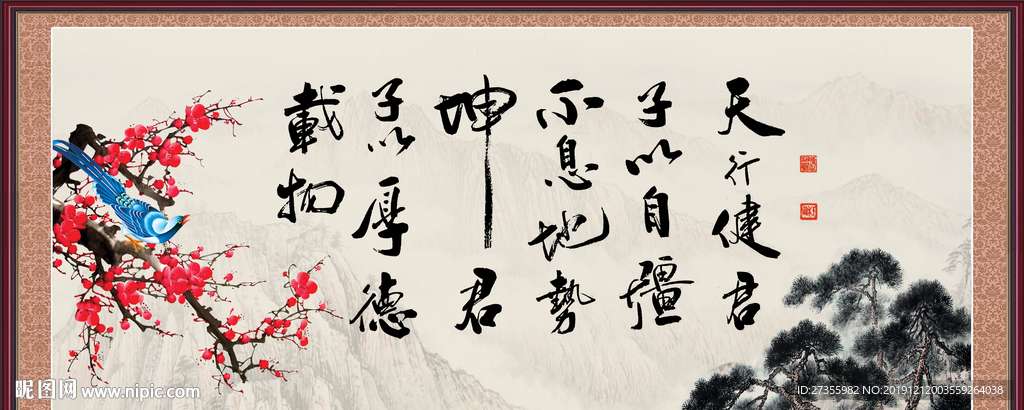 天行健君
子以自彊
不息地勢
坤君
子以厚德
載物
昵图网 www.nipic.com
ID:27355982 NO:20191212003559264038